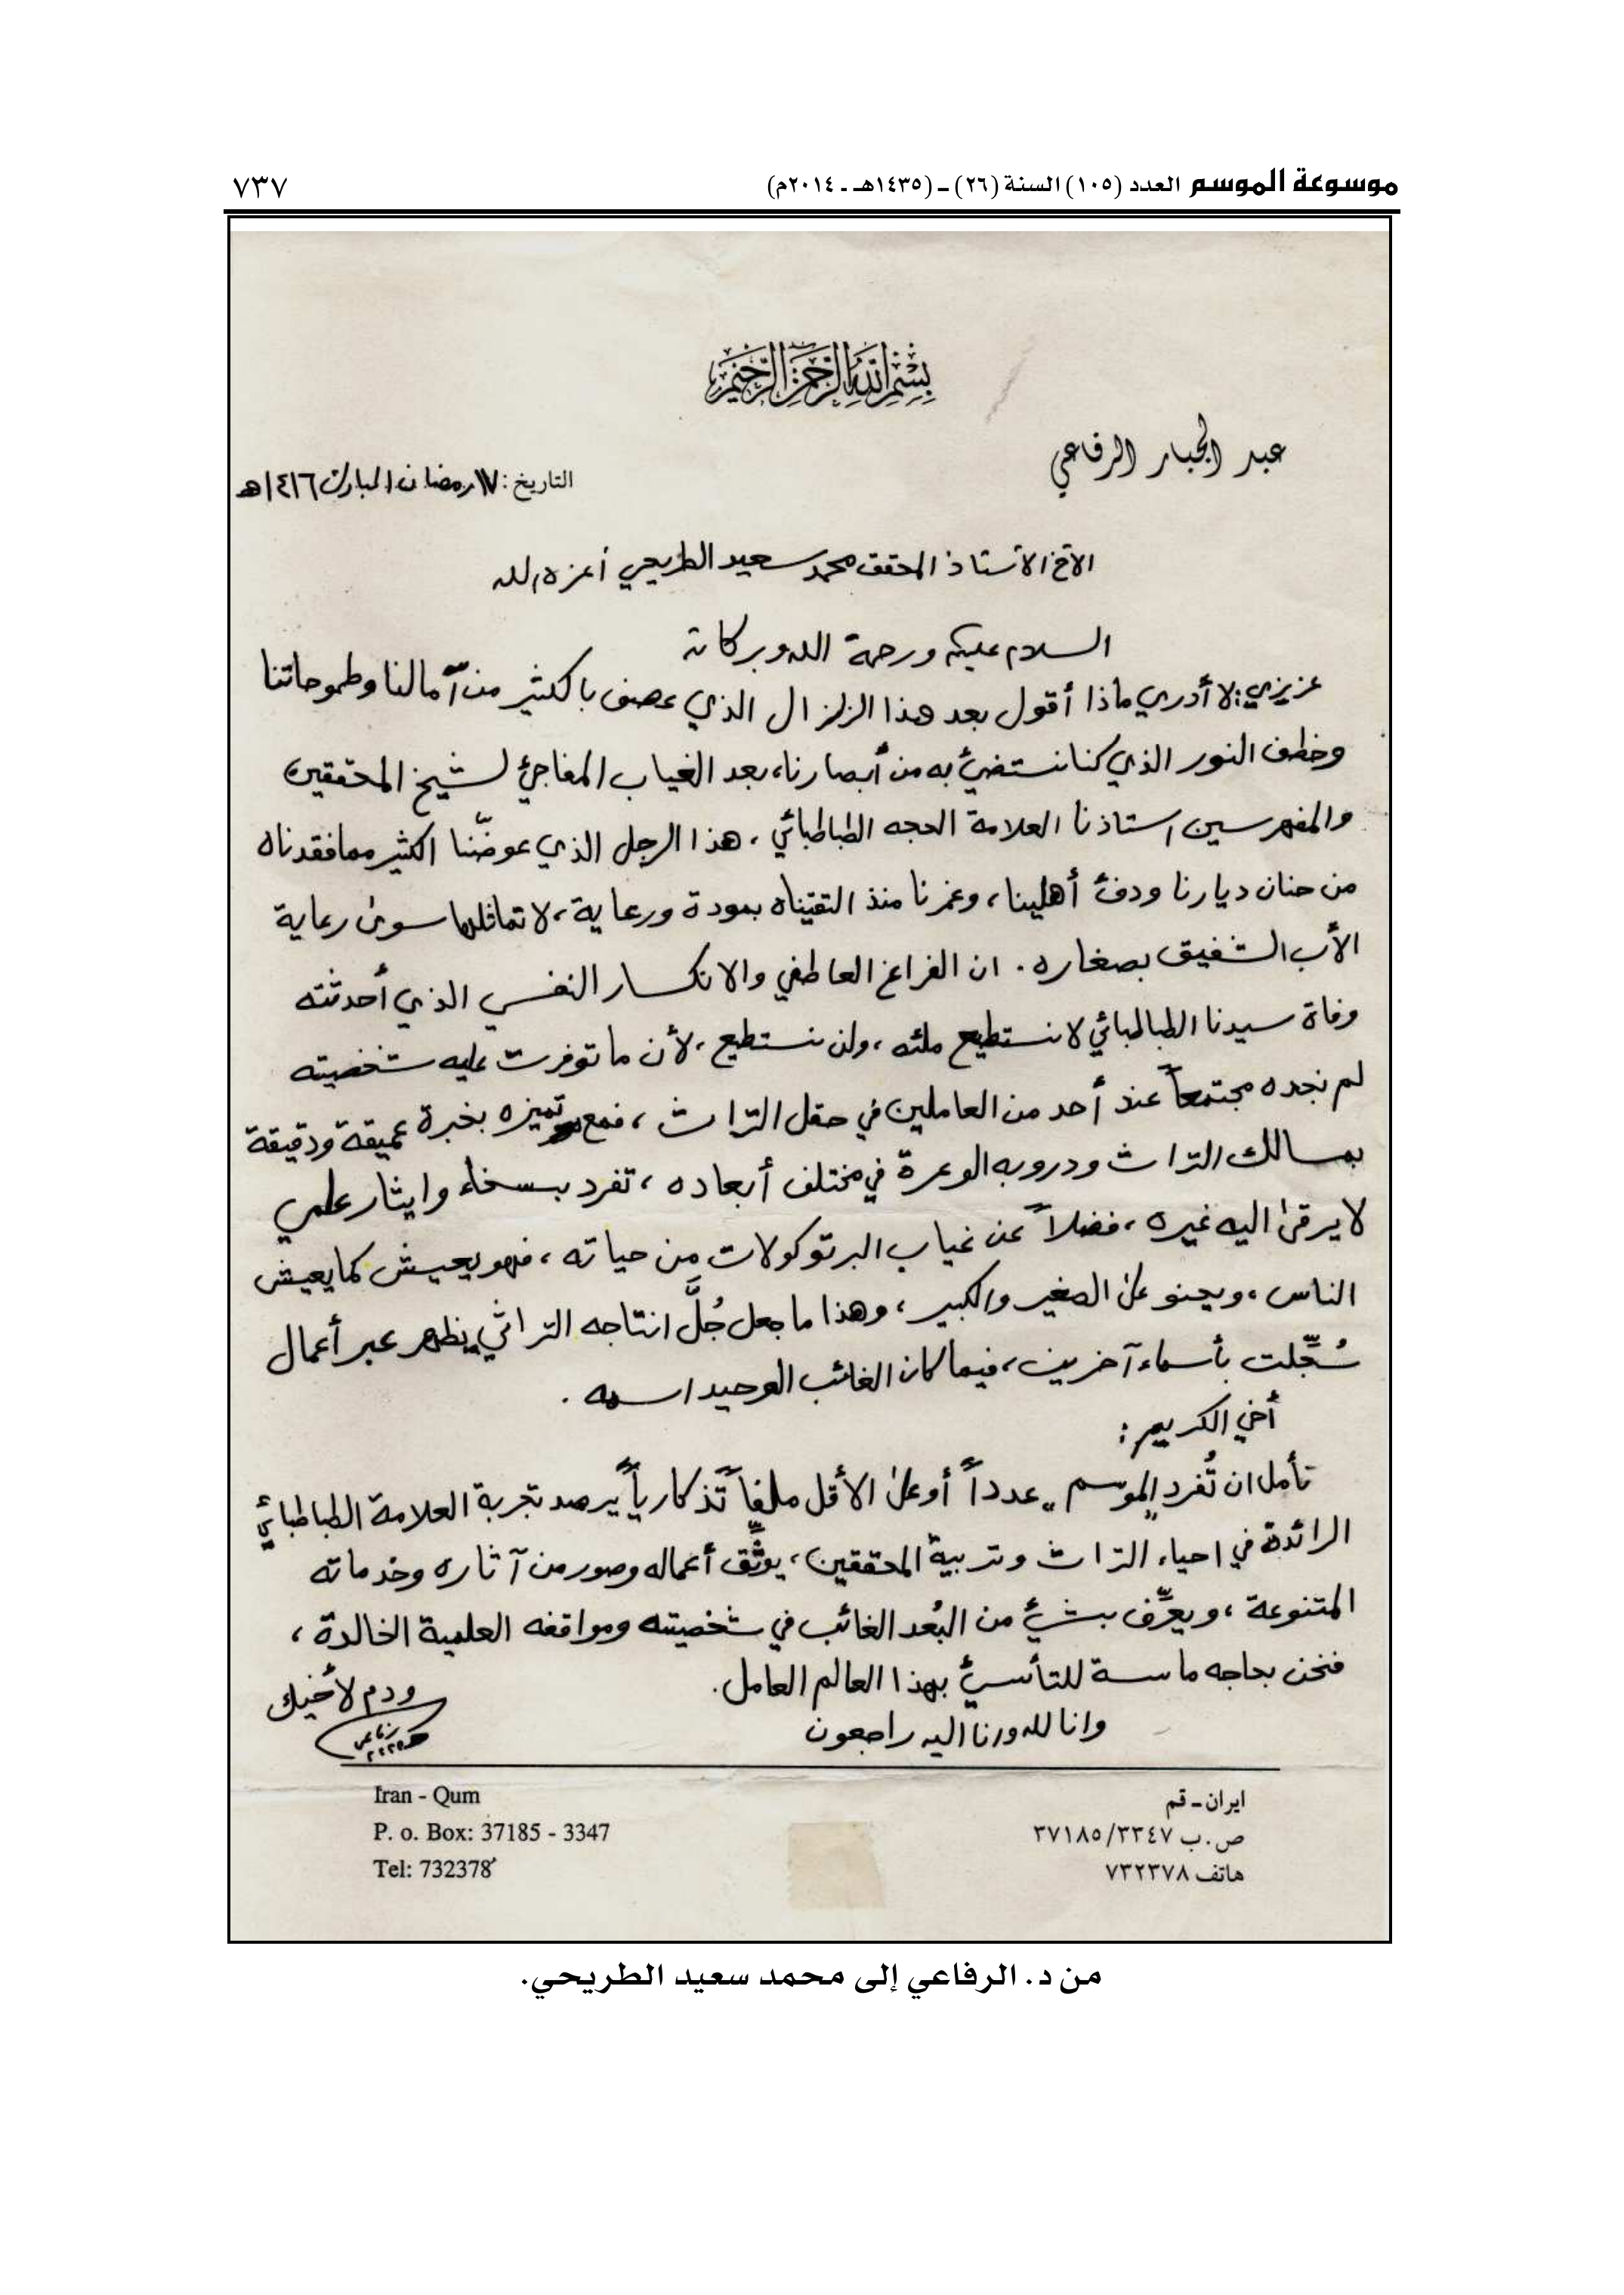 موسوعة الموسم العدد (١٠٥) السنة (٢٦) ـ (١٤٣٥هـ ـ ٢٠١٤م) ٧٣٧
بسم الله الرحمن الرحيم
عبد الجبار الرفاعي
التاريخ: ١٧ رمضان المبارك ١٤١٦هـ
الأخ الأستاذ المحقق محمد سعيد الطريحي أعزه الله
السلام عليكم ورحمة الله وبركاته
عزيزي: لا أدري ماذا أقول بعد هذا الزلزال الذي عصف بالكثير من آمالنا وطموحاتنا
وخطف النور الذي كنا نستضيء به من أبصارنا، بعد الغياب المفاجئ لشيخ المحققين
والمفهرسين استاذنا العلامة الحجه الطباطبائي، هذا الرجل الذي عوضّنا الكثير مما فقدناه
من حنان ديارنا ودفئ أهلينا، وغمرنا منذ التقيناه بمودة ورعاية، لا تماثلها سوى رعاية
الأب الشفيق بصغاره. ان الفراغ العاطفي والانكسار النفسي الذي أحدثته
وفاة سيدنا الطباطبائي لا نستطيع ملئه، ولن نستطيع، لأن ما توفرت عليه شخصيته
لم نجده مجتمعاً عند أحد من العاملين في حقل التراث، فمع تميزه بخبرة عميقة ودقيقة
بمسالك التراث ودروبه الوعرة في مختلف أبعاده، تفرد بسخاء وايثار علمي
لا يرقى اليه غيره، فضلاً عن غياب البرتوكولات من حياته، فهو يعيش كما يعيش
الناس، ويحنو على الصغير والكبير، وهذا ما جعل جُلَّ انتاجه التراثي يظهر عبر أعمال
سُجِّلت بأسماء آخرين، فيما كان الغائب الوحيد اسمه.
أخي الكريم:
نأمل ان تُفرد "الموسم" عدداً أو على الأقل ملفاً تذكارياً يرصد تجربة العلامة الطباطبائي
الرائدة في احياء التراث وتربية المحققين، يوثِّق أعماله وصور من آثاره وخدماته
المتنوعة، ويعرِّف بشيء من البُعد الغائب في شخصيته ومواقفه العلمية الخالدة،
فنحن بحاجه ماسة للتأسيّ بهذا العالم العامل.
وانا لله وانا اليه راجعون
ودم لأخيك
ايران ـ قم
ص.ب ٣٧١٨٥/٣٣٤٧
هاتف ٧٣٢٣٧٨
Iran - Qum
P. o. Box: 37185 - 3347
Tel: 732378
من د. الرفاعي إلى محمد سعيد الطريحي.